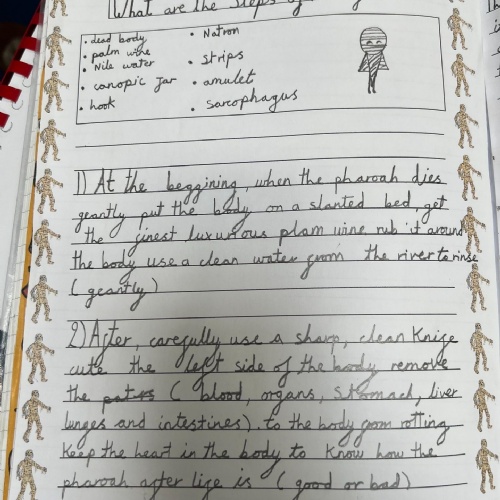 What are the steps of
• dead body
• palm wine
• Nile water
• canopic jar
• hook
• Natron
• strips
• amulet
• sarcophagus
1) At the beggining, when the pharoah dies
geantly put the body on a slanted bed, get
the finest luxurious plam wine rub it around
the body use a clean water from the river to rinse
(geantly)
2) After, carefully use a sharp, clean Knife
cute the left side of the body remove
the (blood, organs, stomach, liver
lunges and intestines). to the body from rotting
Keep the heart in the body to know how the
pharoah after life is (good or bad)